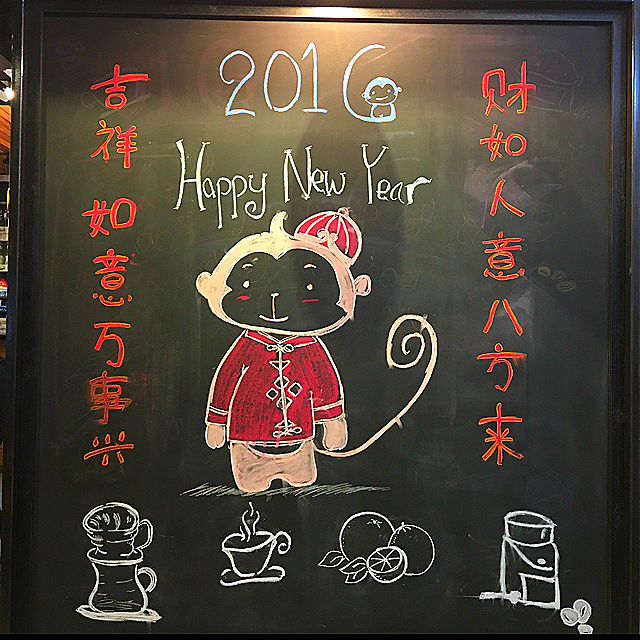 2016
Happy New Year
财如人意八方来
吉祥如意万事兴